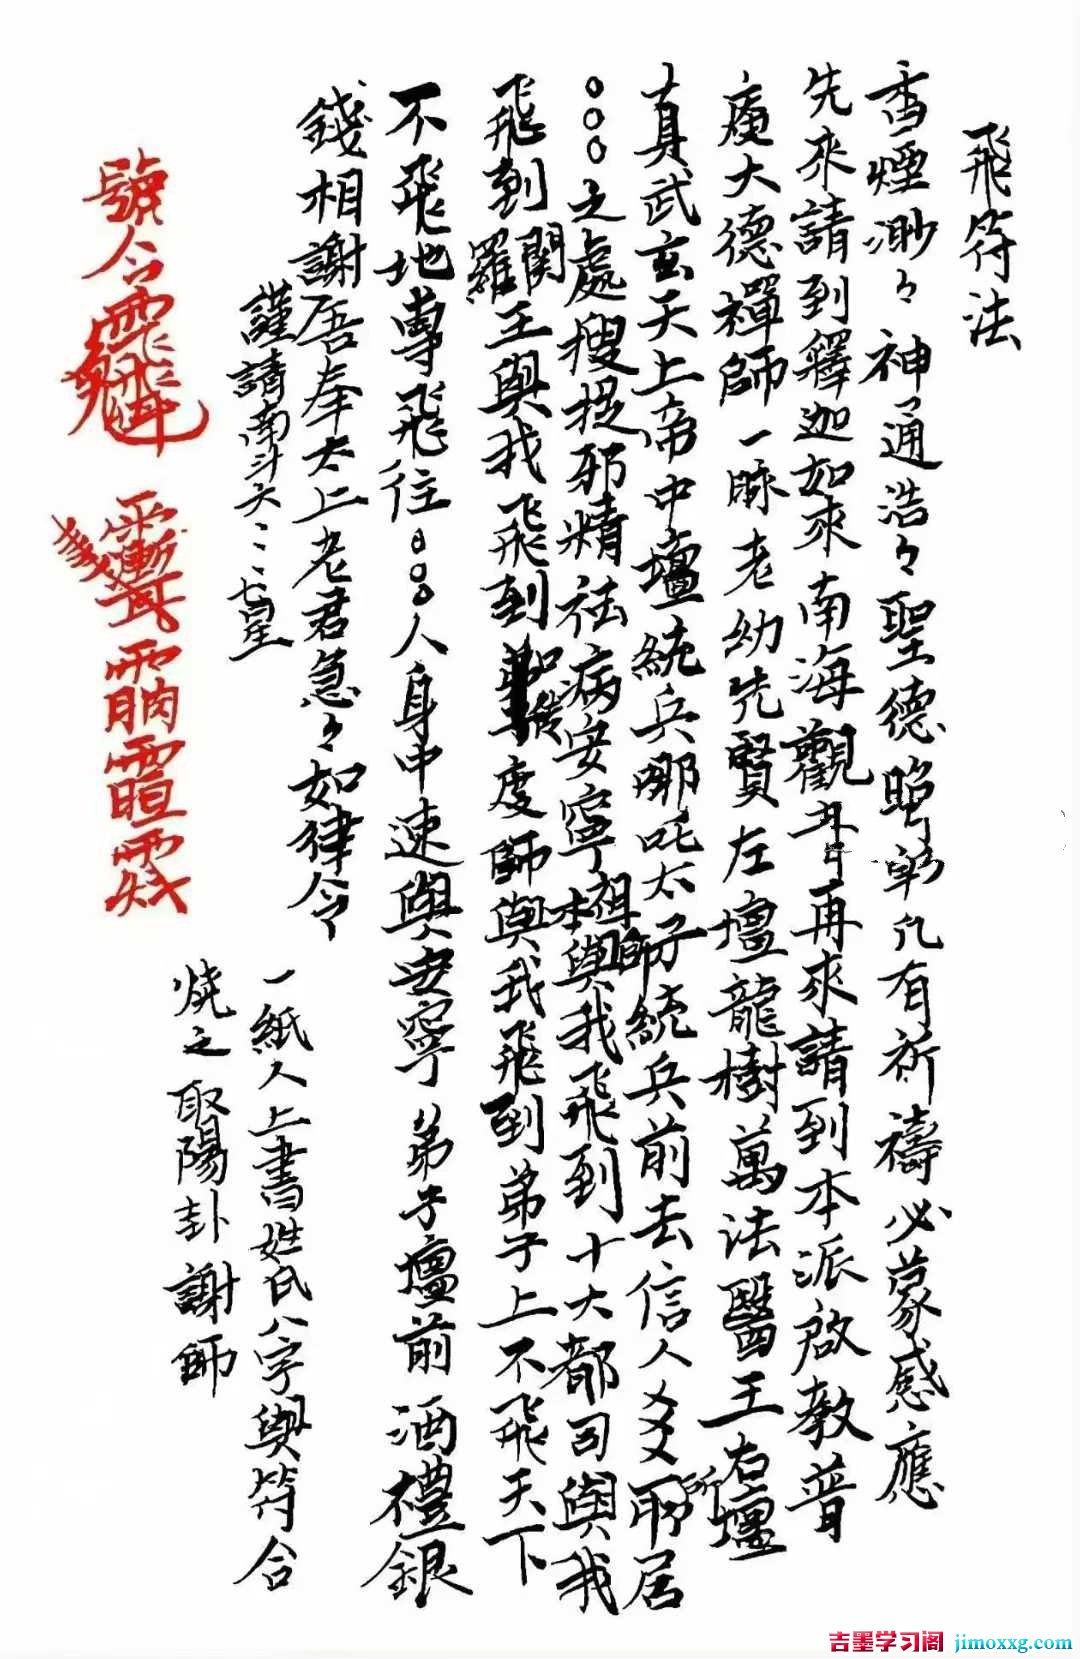 飛符法
香煙渺々神通浩々聖德昭彰凡有祈禱必蒙感應
先來請到釋迦如來南海觀再來請到本派啟教普
庵大德禪師一脉老幼先賢左壇龍樹萬法醫王右壇
真武玄天上帝中壇統兵哪吒太子統兵前去信人又所居
○○○之處搜捉邪精祛病安寧本祖師與我飛到十大都司與我
飛到閻羅王與我飛到度師與我飛到弟子上不飛天下
不飛地專飛往○○○人身中速與安寧弟子壇前酒禮銀
錢相謝吾奉太上老君急々如律令
謹請南斗六七星
號令
一紙人上書姓氏八字與符合
燒之取陽卦謝師
吉墨学习阁 jimoxxg.com